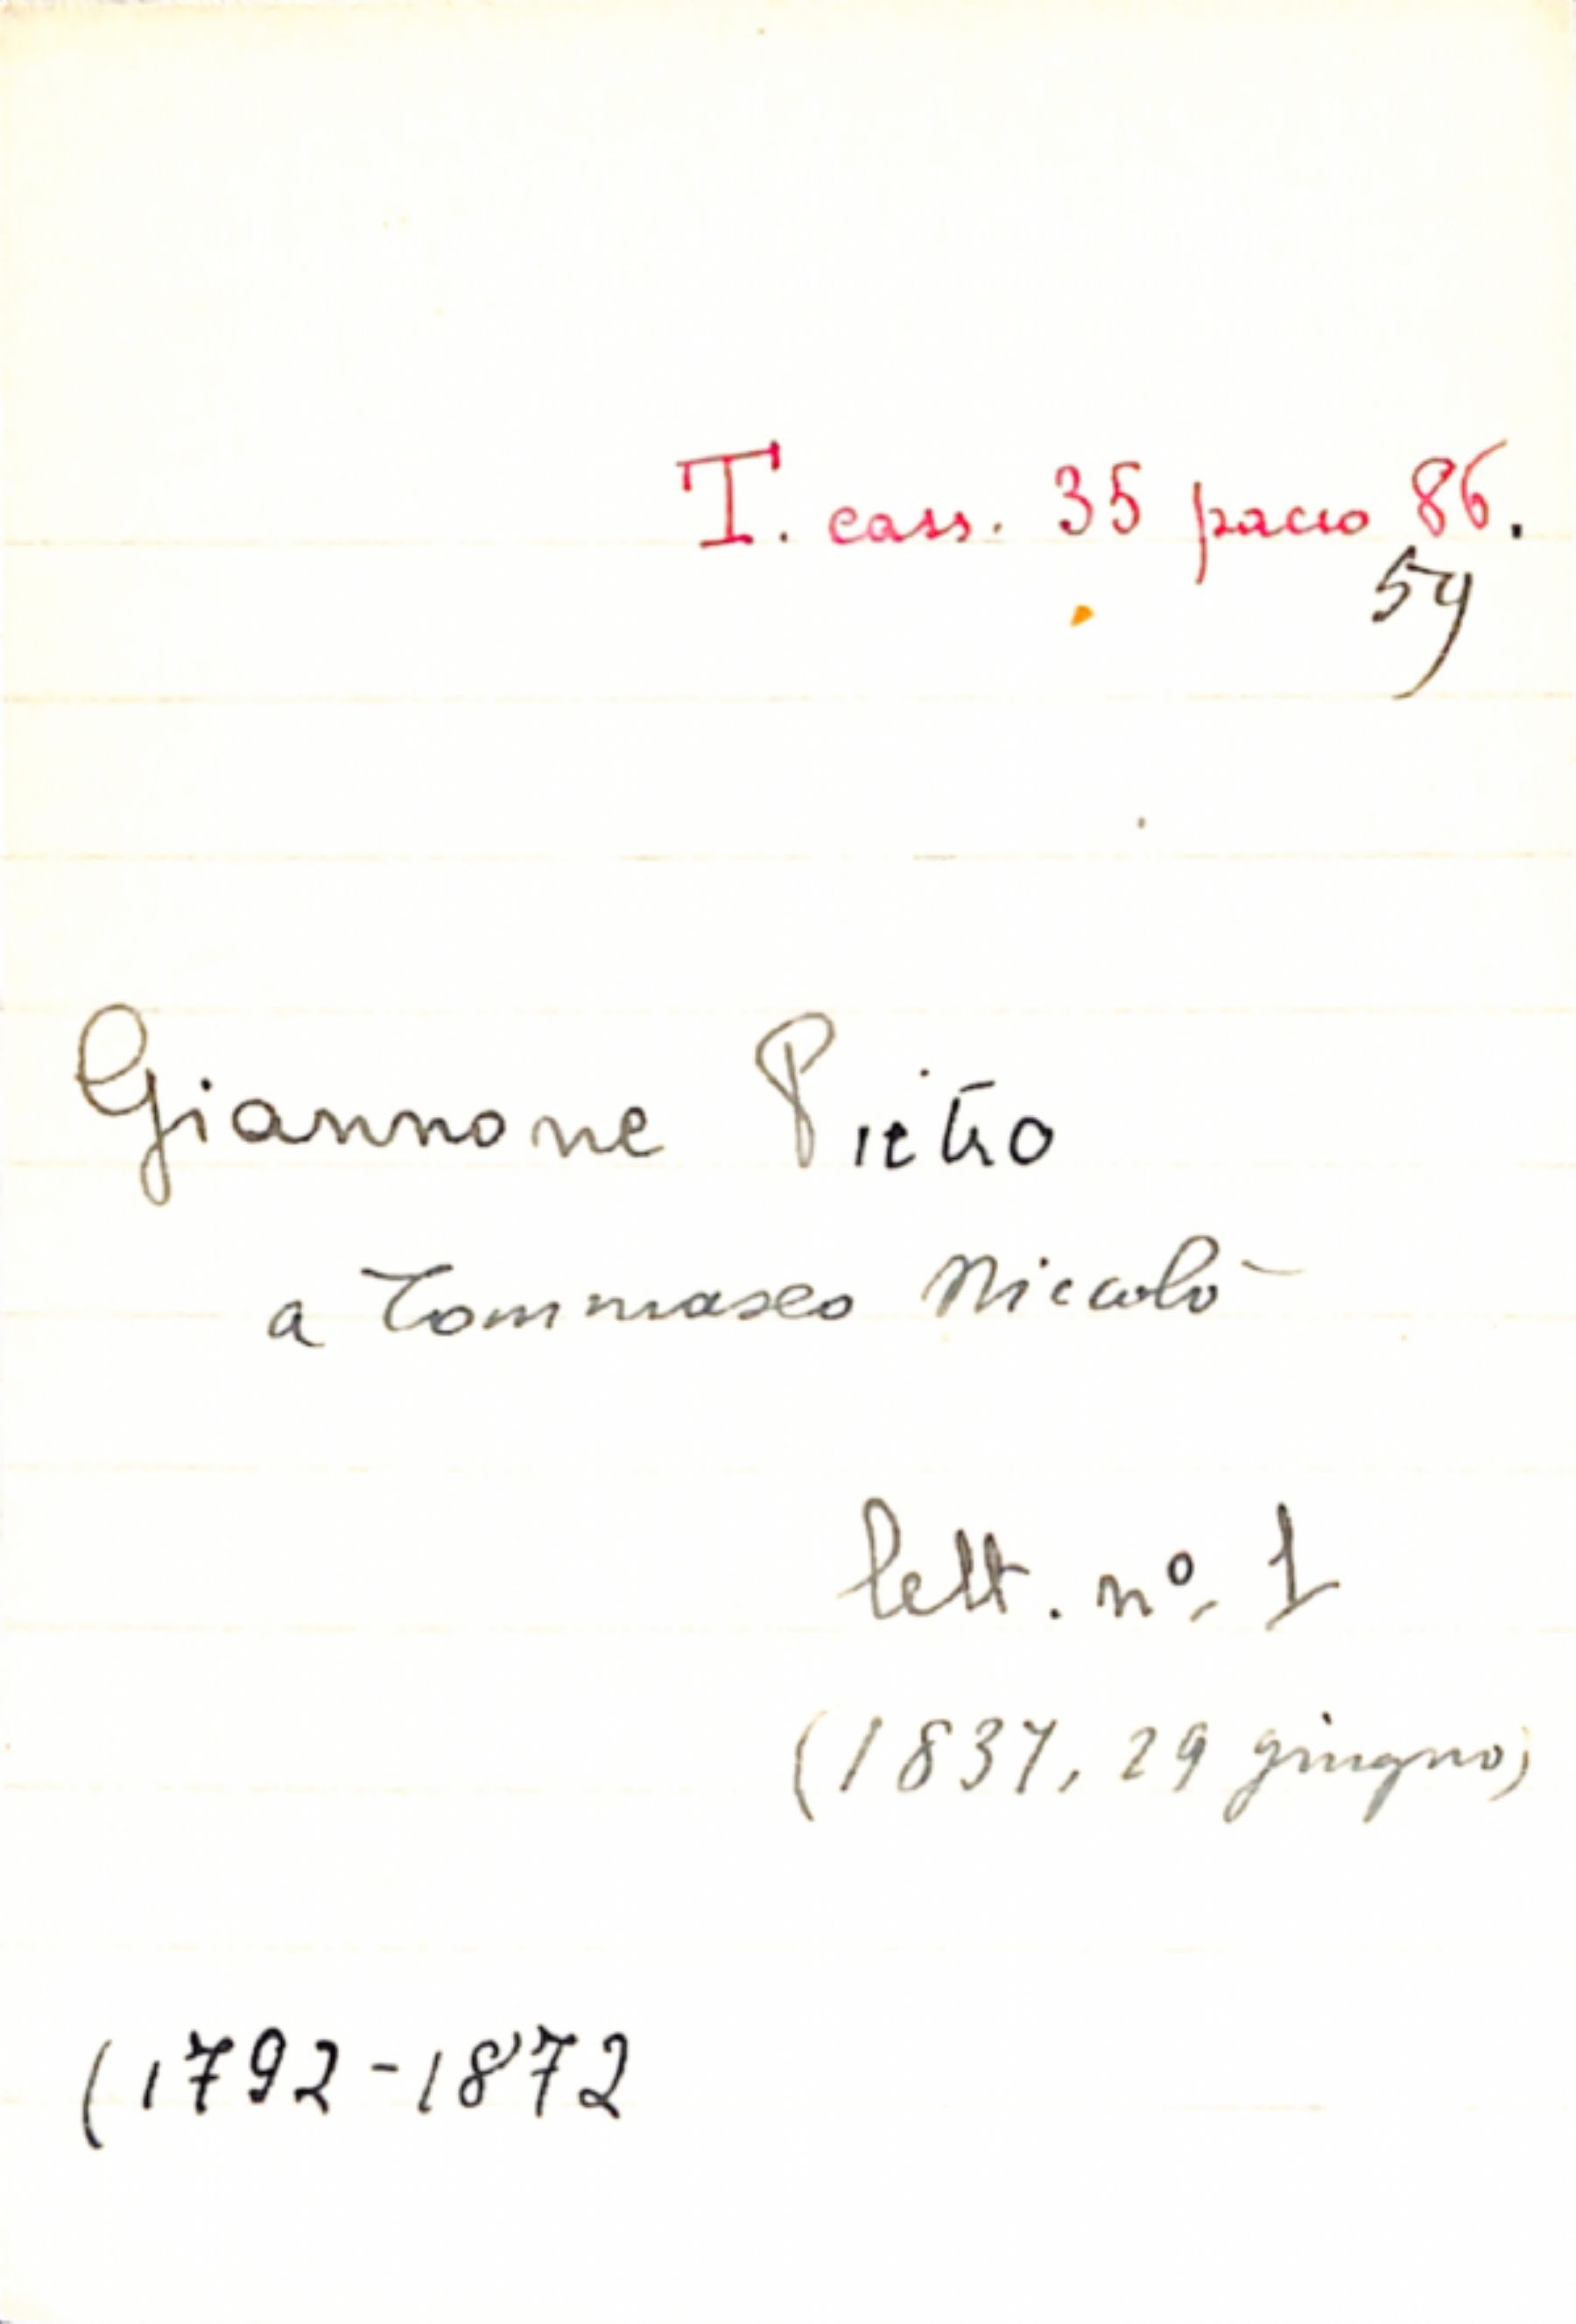 T. cass. 35 pacco 86.
59
Giannone Pietro
a Tommaseo Niccolò
lett. nº. 1
(1837, 29 giugno)
(1792-1872